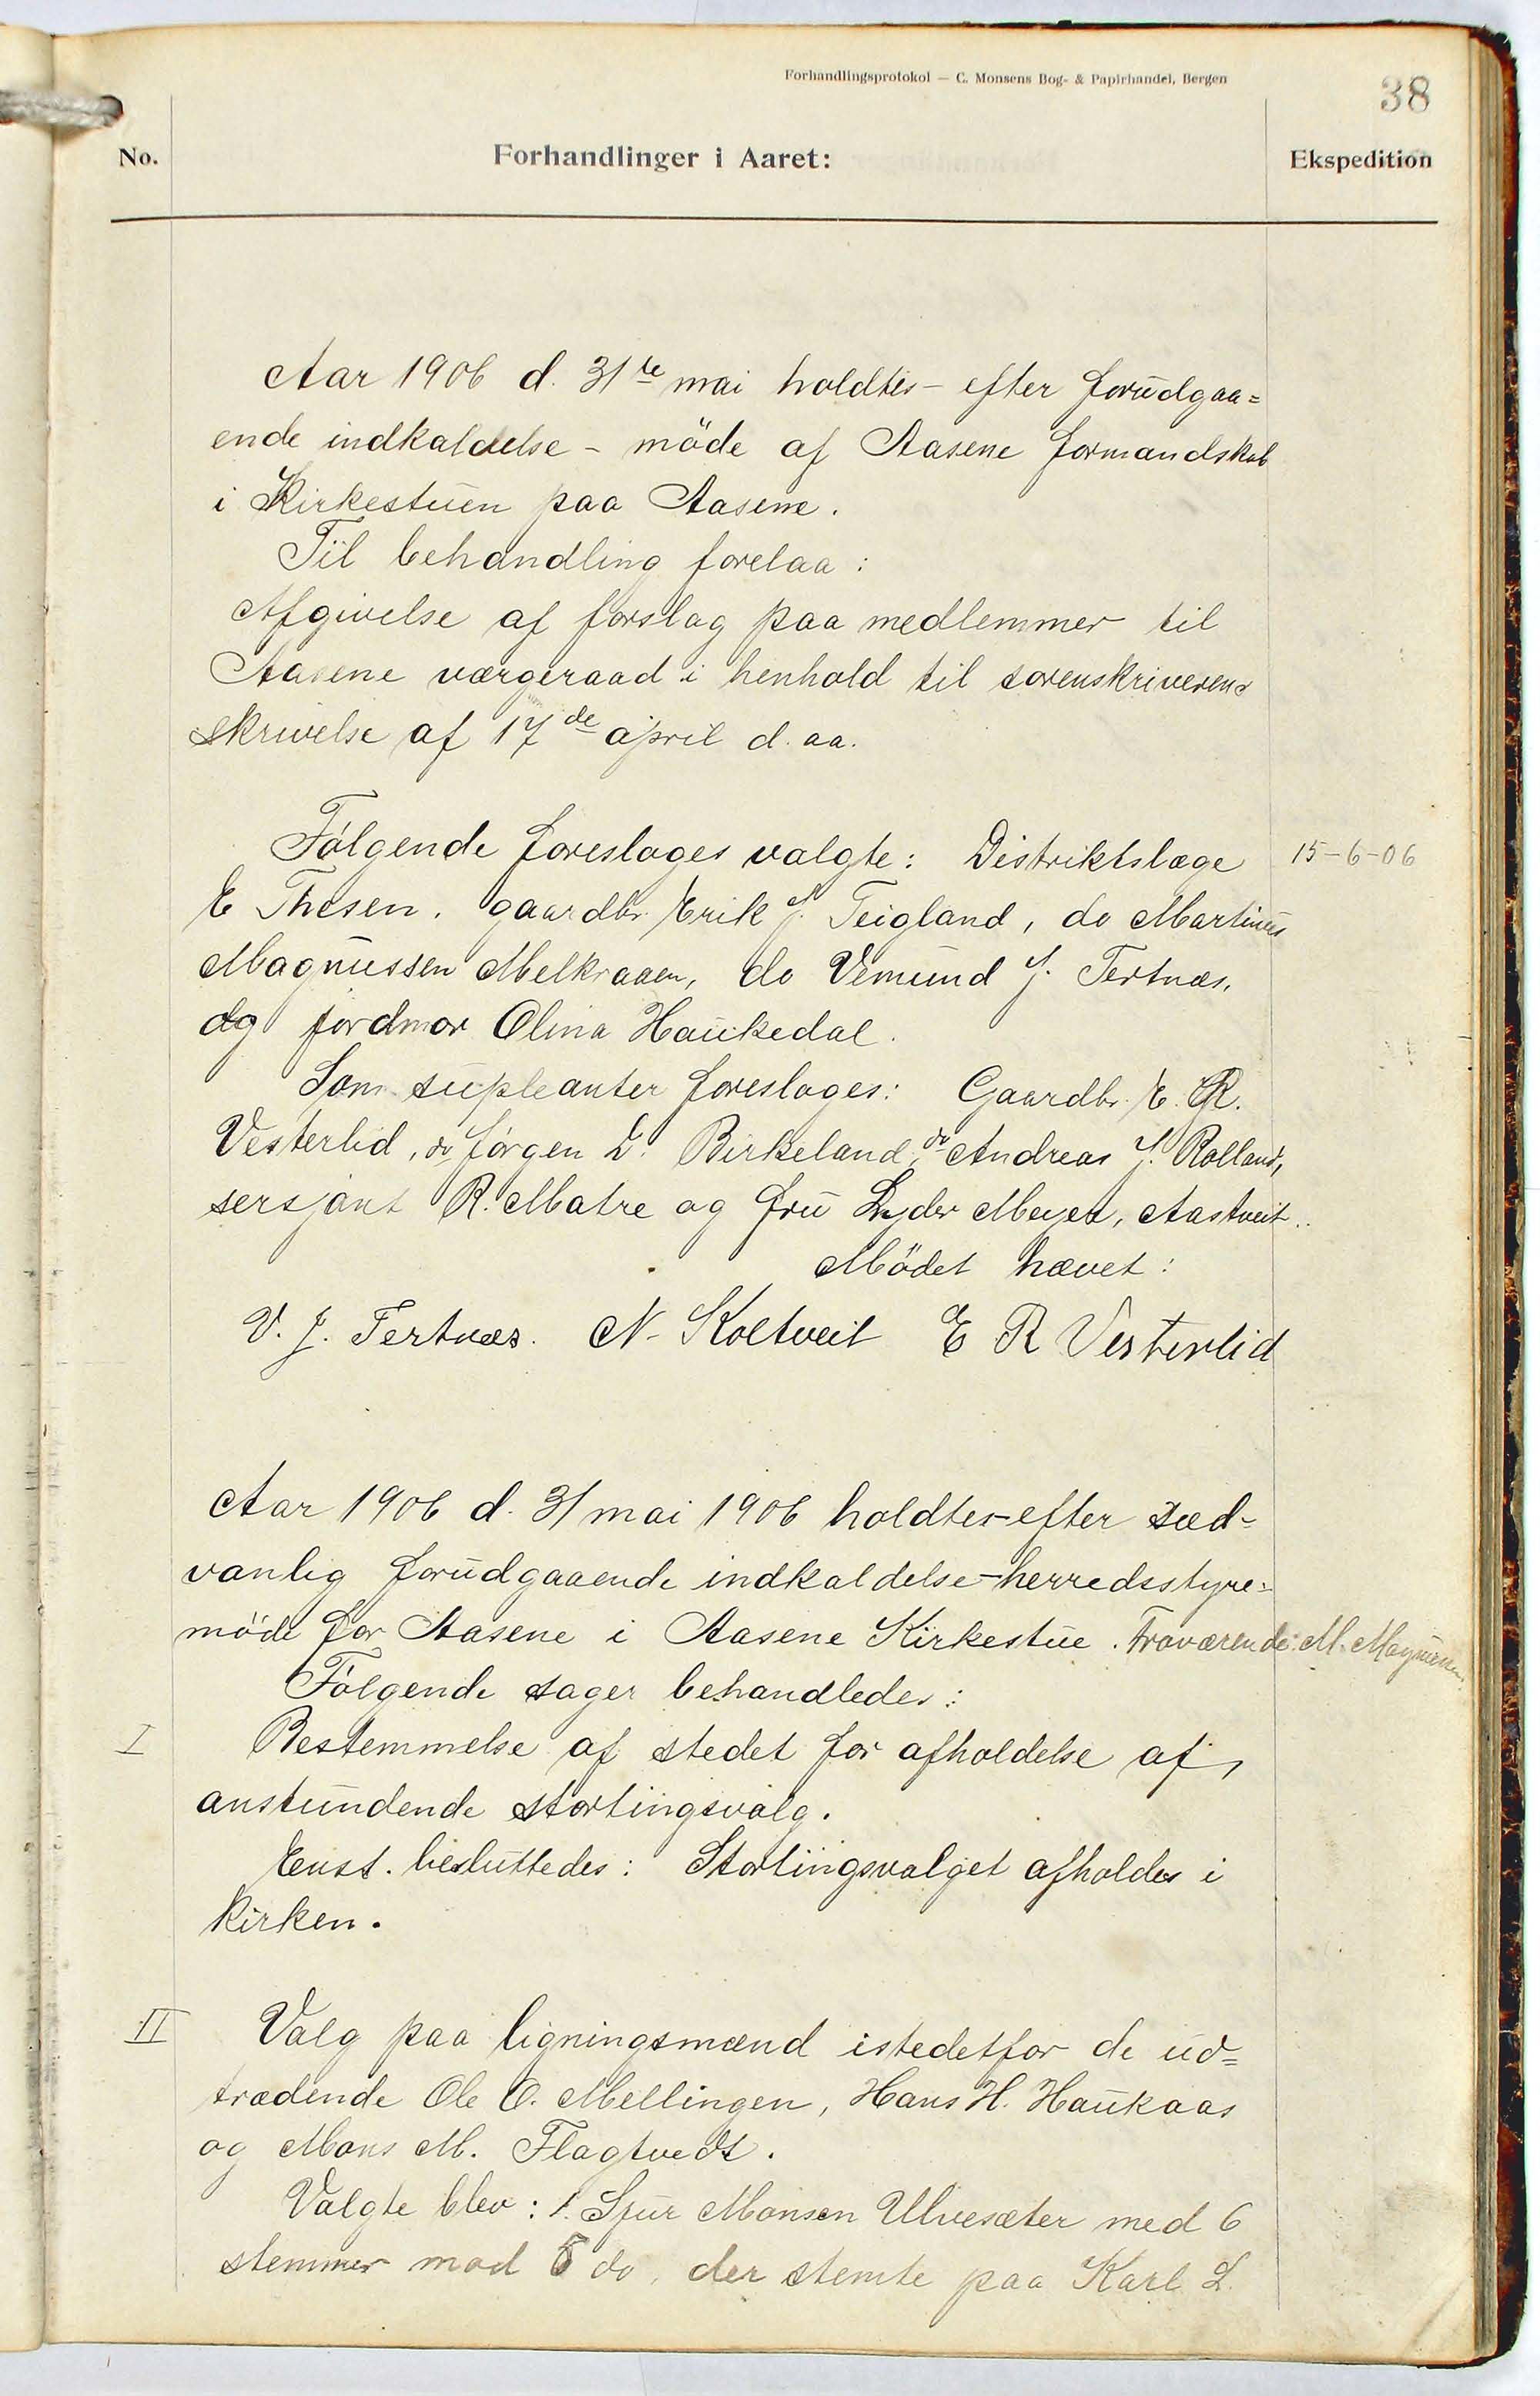 Forhandlingsprotokol — C. Monsens Bog- & Papirhandel, Bergen
38
No.
Forhandlinger i Aaret:
Ekspedition
Aar 1906 d. 31te mai holdtes - efter forudgaa=
ende indkaldelse - möde af Aasene formandskab
i Kirkestuen paa Aasene.
Til behandling forelaa:
Afgivelse af forslag paa medlemmer til
Aasene værgeraad i henhold til sorenskriverens
skrivelse af 17de april d. aa.
Følgende foreslages valgte: Distriktslæge
15-6-06
E Thesen. gaardbr. Erik J. Teigland, do Martinus
Magnussen Melkraaen, do Vemund J. Tertnæs,
og jordmor Olina Haukedal.
Som supleanter foreslages: Gaardbr. E. R.
Vesterlid, do Jørgen D. Birkeland, do Andreas J. Rolland,
sersjant R. Matre og fru Lyder Meyer, Aastveit.
Mödet hævet:
V. J. Tertnæs. N. Koltveit E R Vesterlid
Aar 1906 d. 31 mai 1906 holdtes - efter sæd=
vanlig forudgaaende indkaldelse - herredsstyre=
möde for Aasene i Aasene Kirkestue. Fraværende: M. Magnussen.
Følgende sager behandledes:
I
Bestemmelse af stedet for afholdelse af
anstundende stortingsvalg.
Enst. besluttedes: Stortingsvalget afholdes i
kirken.
II
Valg paa ligningsmænd istedetfor de ud=
trædende Ole O. Mellingen, Hans H. Haukaas
og Mons M. Flagtvedt.
Valgte blev: 1. Sjur Monsen Ulvesæter med 6
stemmer mod 5 do, der stemte paa Karl L.